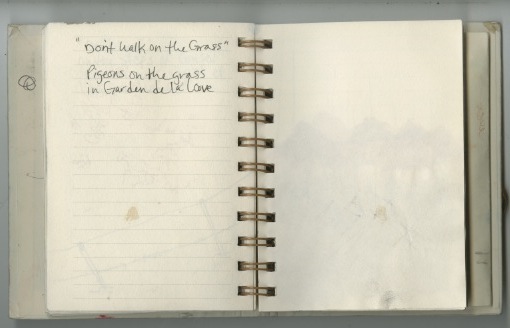 "Don't walk on the Grass"
Pigeons on the grass
in Garden de la Love